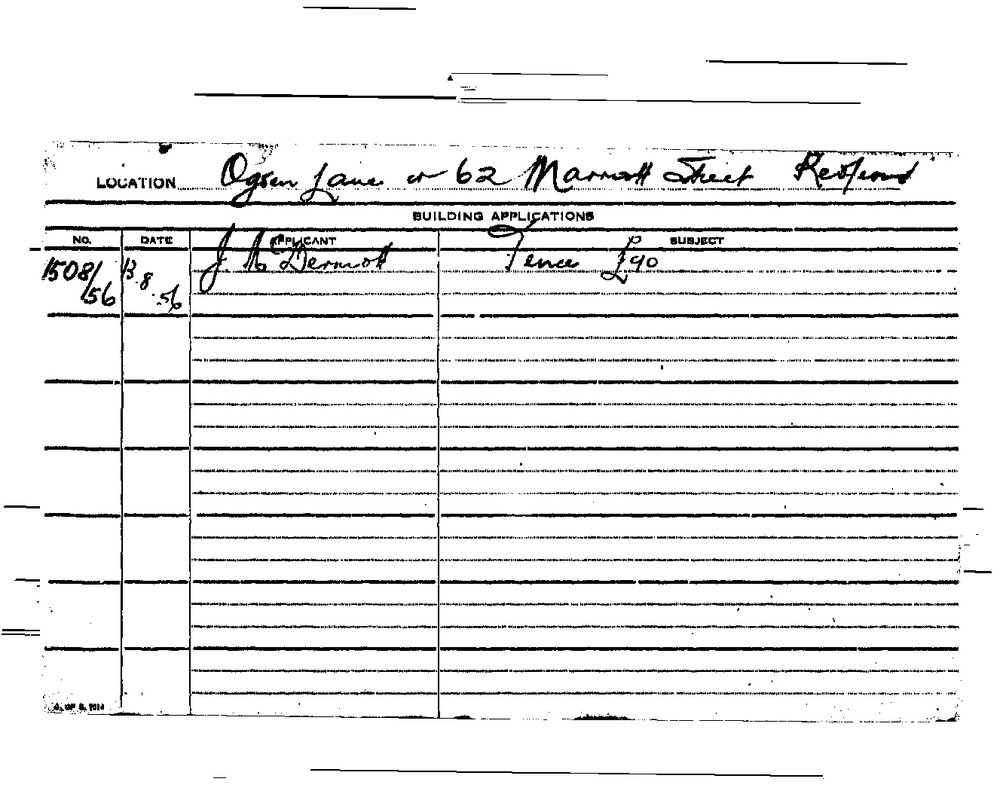 LOCATION Ogden Lane or 62 Marriott Street Redfern
BUILDING APPLICATIONS
NO. DATE APPLICANT SUBJECT
1508/56 13.8.56 J. McDermott Fence £90